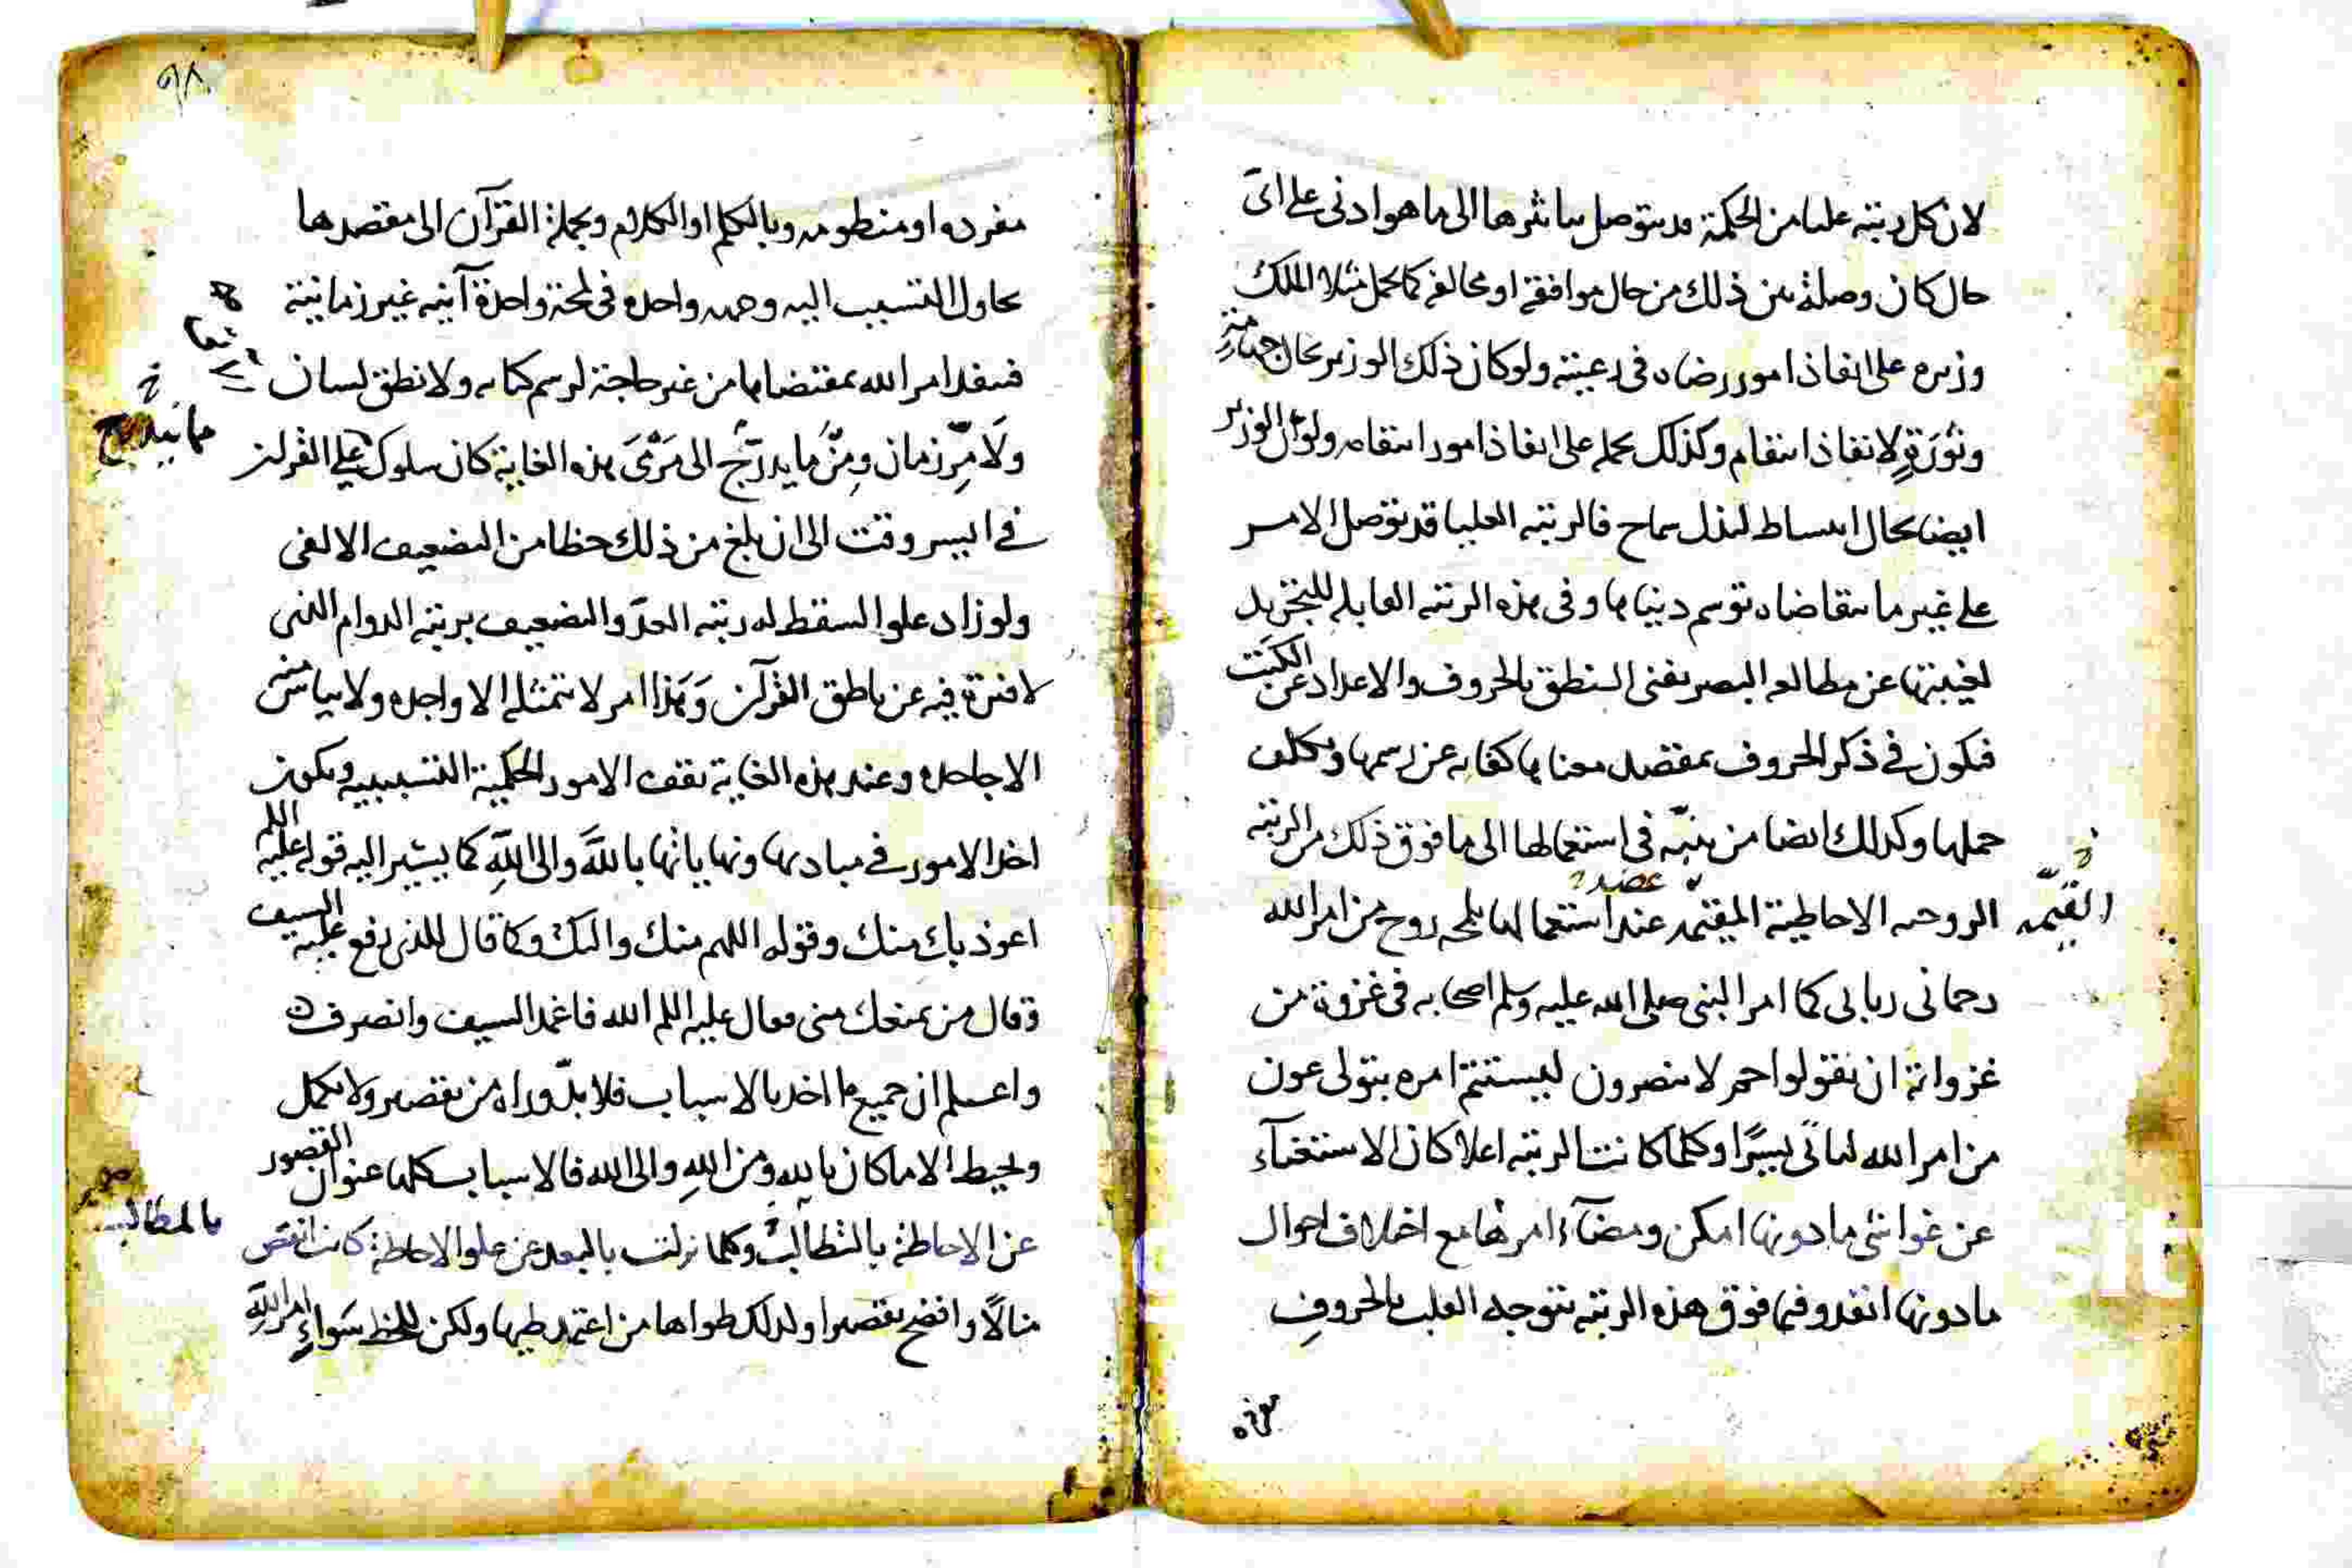 لان كل رتبة عليا من الحكمة قد يتوصل بتاثرها الى ما هو ادنى على اى
حال كان وصلة من ذلك من حال موافقة او مخالفة كما يحمل مثلا الملك
وزيره على انفاذ امور رضاه فى رعيته ولو كان ذلك الوزير بحال
وثورة لانفاذ انتقام وكذلك يحمله على انفاذ امور انتقامه ولو كان الوزير
ايضا بحال انبساط لبذل سماح فالرتبه العليا قد توصل الامر
على غير ما يتقاضاه توسم دنياها وفى هذه الرتبه القابله
لغيبتها عن مطالعه البصر يغنى النطق بالحروف والاعداد عن الكتب
فيكون فى ذكر الحروف بمقصد معناها كفايه عن رسمها وتكلف
حملها وكذلك ايضا من ينبه فى استعمالها الى ما فوق ذلك من الرتبه
الروحيه الاحاطية عند استعمالها بلمحه روح من امر الله
القيمه
رحمانى ربانى كما امر النبى صلى الله عليه وسلم اصحابه فى غزوة من
غزواته ان يقولوا حم لا ينصرون ليستتم امره بتولى عون
من امر الله لما تى يسرا وكلما كانت الرتبه اعلا كان الاستغناء
عن غواشى ما دونها امكن ومضاء امرها مع اختلاف احوال
ما دونها انفذ وفيما فوق هذه الرتبه يتوجه القلب بالحروف
مفرده
٩٨
مفرده او منظومه وبالكلم او الكلام وبجملة القرآن الى مقصدها
يحاول التسبب اليه وجهه واحده فى لمحة واحدة آنيه غير زمانية
فينفذ امر الله بمقتضاها من غير حاجة لرسم كتابه ولا نطق لسان
ولا مر زمان ومن ما يدرج الى مرمى هذه الغاية كان سلوك على القرآن
مما يتدرج
فى ايسر وقت الى ان بلغ من ذلك حظا من التضعيف الالفى
ولو زاد علوا لسقط له رتبه العد والتضعيف برتبه الدوام التى
لا فترة فيه عن ناطق القرآن وهذا امر لا يتمثله الا واجده ولا يياس منه
الا جاحده وعند هذه الغاية تقف الامور الحكمية التسببيه ويكون
اخذ الامور فى مباديها ونهاياتها بالله والى الله كما يشير اليه قوله عليه اللم
اعوذ بك منك وقوله اللهم منك واليك وكما قال للذى رفع عليه السيف
وقال من يمنعك منى فقال عليه اللم الله فاغمد السيف وانصرف
واعلم ان جميع ما اخذ بالاسباب فلا بد وراه من تقصير ولا يكمل
ويحيط الا ما كان بالله ومن الله والى الله فالاسباب كلها عنوان القصور
عن الاحاطة بالتطالب وكلما نزلت بالبعد عن علو الاحاطة كانت انقص
بالمطالب
منالا وافضح تقصيرا ولذلك طواها من اعتمد طيها ولكن للحظ سواء امر الله